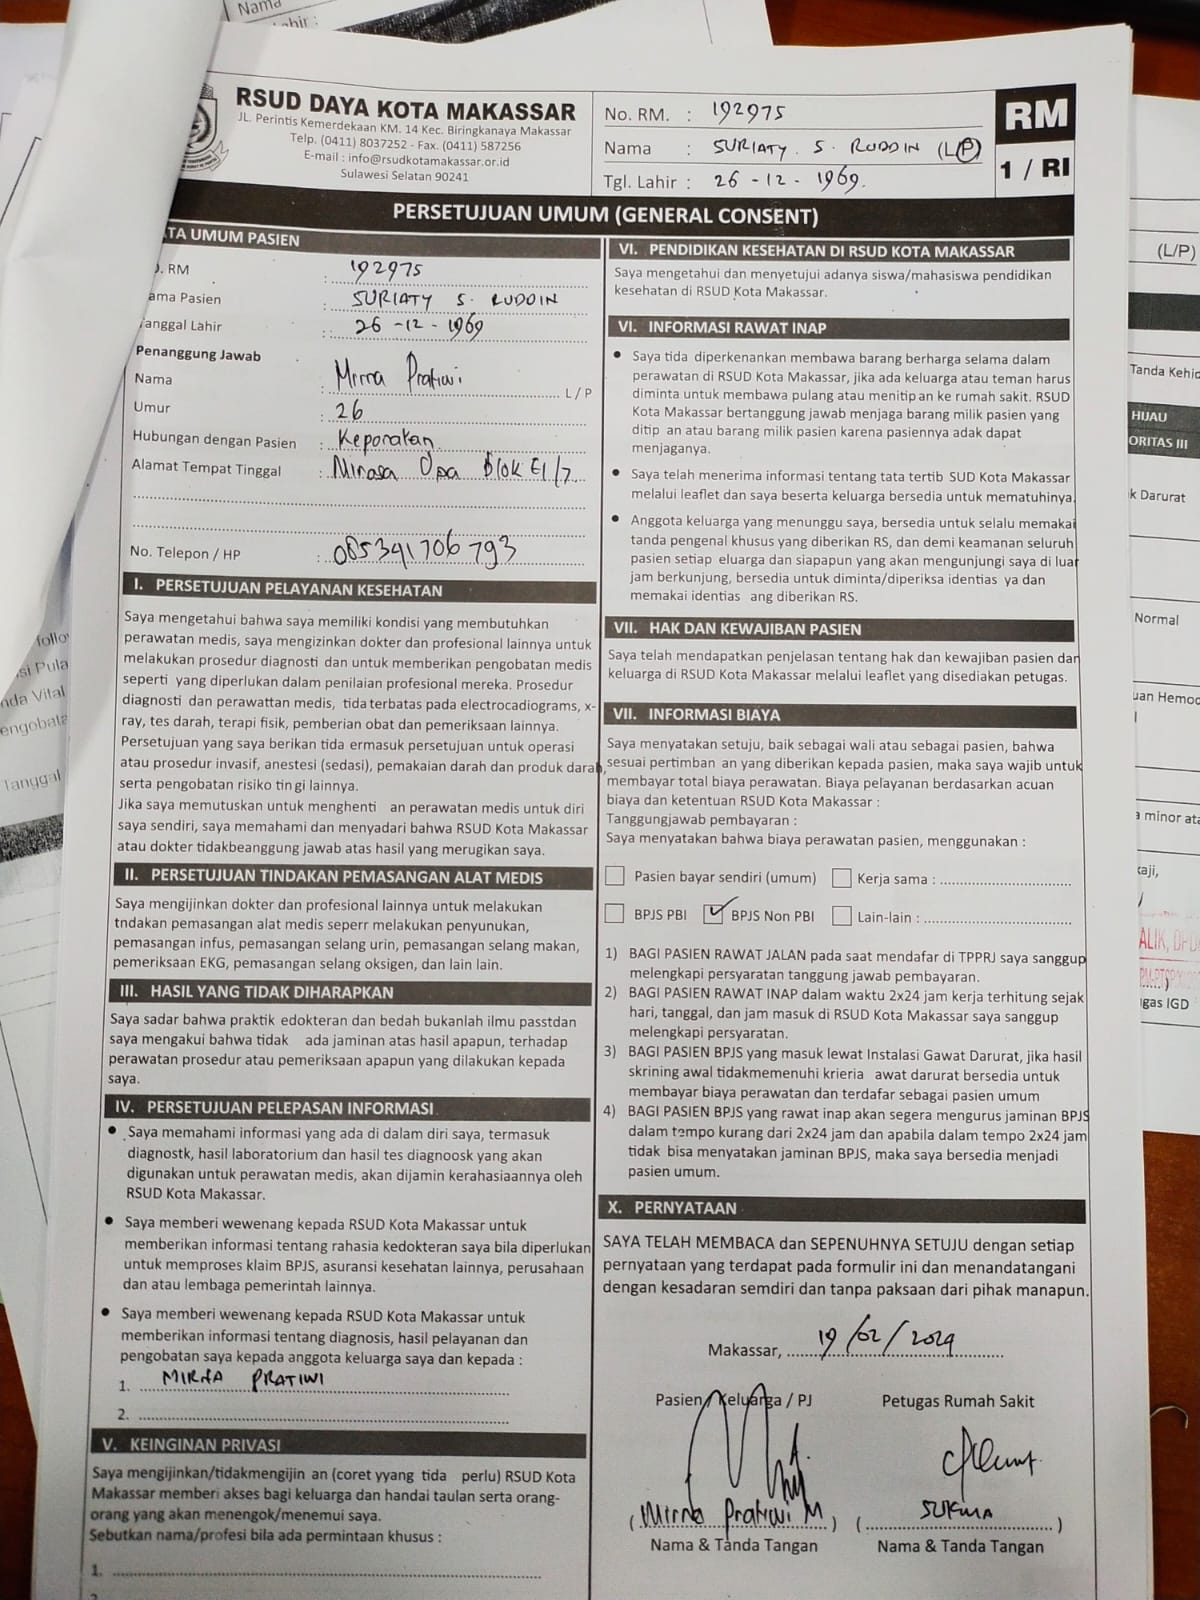 Nama
RSUD DAYA KOTA MAKASSAR
JL. Perintis Kemerdekaan KM. 14 Kec. Biringkanaya Makassar
Telp. (0411) 8037252 - Fax. (0411) 587256
E-mail : info@rsudkotamakassar.or.id
Sulawesi Selatan 90241
No. RM. : 192975
Nama : SURIATY S. RUDDIN (L/P)
Tgl. Lahir : 26 - 12 - 1969.
RM
1 / RI
PERSETUJUAN UMUM (GENERAL CONSENT)
TA UMUM PASIEN
. RM : 192975
ama Pasien : SURIATY S. RUDDIN
Tanggal Lahir : 26 - 12 - 1969
Penanggung Jawab
Nama : Mirna Pratiwi L / P
Umur : 26
Hubungan dengan Pasien : Keponakan
Alamat Tempat Tinggal : Minasa Upa Blok E1/7
No. Telepon / HP : 085391706793
I. PERSETUJUAN PELAYANAN KESEHATAN
Saya mengetahui bahwa saya memiliki kondisi yang membutuhkan
perawatan medis, saya mengizinkan dokter dan profesional lainnya untuk
melakukan prosedur diagnosti dan untuk memberikan pengobatan medis
seperti yang diperlukan dalam penilaian profesional mereka. Prosedur
diagnosti dan perawattan medis, tida terbatas pada electrocadiograms, x-
ray, tes darah, terapi fisik, pemberian obat dan pemeriksaan lainnya.
Persetujuan yang saya berikan tida ermasuk persetujuan untuk operasi
atau prosedur invasif, anestesi (sedasi), pemakaian darah dan produk darah,
serta pengobatan risiko tin gi lainnya.
Jika saya memutuskan untuk menghenti an perawatan medis untuk diri
saya sendiri, saya memahami dan menyadari bahwa RSUD Kota Makassar
atau dokter tidakbeanggung jawab atas hasil yang merugikan saya.
II. PERSETUJUAN TINDAKAN PEMASANGAN ALAT MEDIS
Saya mengijinkan dokter dan profesional lainnya untuk melakukan
tndakan pemasangan alat medis seperr melakukan penyunukan,
pemasangan infus, pemasangan selang urin, pemasangan selang makan,
pemeriksaan EKG, pemasangan selang oksigen, dan lain lain.
III. HASIL YANG TIDAK DIHARAPKAN
Saya sadar bahwa praktik edokteran dan bedah bukanlah ilmu passtdan
saya mengakui bahwa tidak ada jaminan atas hasil apapun, terhadap
perawatan prosedur atau pemeriksaan apapun yang dilakukan kepada
saya.
IV. PERSETUJUAN PELEPASAN INFORMASI
• Saya memahami informasi yang ada di dalam diri saya, termasuk
diagnostk, hasil laboratorium dan hasil tes diagnoosk yang akan
digunakan untuk perawatan medis, akan dijamin kerahasiaannya oleh
RSUD Kota Makassar.
• Saya memberi wewenang kepada RSUD Kota Makassar untuk
memberikan informasi tentang rahasia kedokteran saya bila diperlukan
untuk memproses klaim BPJS, asuransi kesehatan lainnya, perusahaan
dan atau lembaga pemerintah lainnya.
• Saya memberi wewenang kepada RSUD Kota Makassar untuk
memberikan informasi tentang diagnosis, hasil pelayanan dan
pengobatan saya kepada anggota keluarga saya dan kepada :
1. MIRNA PRATIWI
2.
V. KEINGINAN PRIVASI
Saya mengijinkan/tidakmengijin an (coret yyang tida perlu) RSUD Kota
Makassar memberi akses bagi keluarga dan handai taulan serta orang-
orang yang akan menengok/menemui saya.
Sebutkan nama/profesi bila ada permintaan khusus :
1.
VI. PENDIDIKAN KESEHATAN DI RSUD KOTA MAKASSAR
Saya mengetahui dan menyetujui adanya siswa/mahasiswa pendidikan
kesehatan di RSUD Kota Makassar.
VI. INFORMASI RAWAT INAP
• Saya tida diperkenankan membawa barang berharga selama dalam
perawatan di RSUD Kota Makassar, jika ada keluarga atau teman harus
diminta untuk membawa pulang atau menitip an ke rumah sakit. RSUD
Kota Makassar bertanggung jawab menjaga barang milik pasien yang
ditip an atau barang milik pasien karena pasiennya adak dapat
menjaganya.
• Saya telah menerima informasi tentang tata tertib SUD Kota Makassar
melalui leaflet dan saya beserta keluarga bersedia untuk mematuhinya
• Anggota keluarga yang menunggu saya, bersedia untuk selalu memakai
tanda pengenal khusus yang diberikan RS, dan demi keamanan seluruh
pasien setiap eluarga dan siapapun yang akan mengunjungi saya di luar
jam berkunjung, bersedia untuk diminta/diperiksa identias ya dan
memakai identias ang diberikan RS.
VII. HAK DAN KEWAJIBAN PASIEN
Saya telah mendapatkan penjelasan tentang hak dan kewajiban pasien dan
keluarga di RSUD Kota Makassar melalui leaflet yang disediakan petugas.
VII. INFORMASI BIAYA
Saya menyatakan setuju, baik sebagai wali atau sebagai pasien, bahwa
sesuai pertimban an yang diberikan kepada pasien, maka saya wajib untuk
membayar total biaya perawatan. Biaya pelayanan berdasarkan acuan
biaya dan ketentuan RSUD Kota Makassar :
Tanggungjawab pembayaran :
Saya menyatakan bahwa biaya perawatan pasien, menggunakan :
Pasien bayar sendiri (umum) Kerja sama :
BPJS PBI BPJS Non PBI Lain-lain :
1) BAGI PASIEN RAWAT JALAN pada saat mendafar di TPPRJ saya sanggup
melengkapi persyaratan tanggung jawab pembayaran.
2) BAGI PASIEN RAWAT INAP dalam waktu 2x24 jam kerja terhitung sejak
hari, tanggal, dan jam masuk di RSUD Kota Makassar saya sanggup
melengkapi persyaratan.
3) BAGI PASIEN BPJS yang masuk lewat Instalasi Gawat Darurat, jika hasil
skrining awal tidakmemenuhi krieria awat darurat bersedia untuk
membayar biaya perawatan dan terdafar sebagai pasien umum
4) BAGI PASIEN BPJS yang rawat inap akan segera mengurus jaminan BPJS
dalam tempo kurang dari 2x24 jam dan apabila dalam tempo 2x24 jam
tidak bisa menyatakan jaminan BPJS, maka saya bersedia menjadi
pasien umum.
X. PERNYATAAN
SAYA TELAH MEMBACA dan SEPENUHNYA SETUJU dengan setiap
pernyataan yang terdapat pada formulir ini dan menandatangani
dengan kesadaran semdiri dan tanpa paksaan dari pihak manapun.
Makassar, 19/02/2024
Pasien / Keluarga / PJ Petugas Rumah Sakit
(Mirna Pratiwi M) (SUKMA)
Nama & Tanda Tangan Nama & Tanda Tangan
(L/P)
Tanda Kehid
HIJAU
ORITAS III
k Darurat
Normal
uan Hemod
a minor ata
kaji,
gas IGD
follo
si Pula
nda Vital
engobata
Tanggal